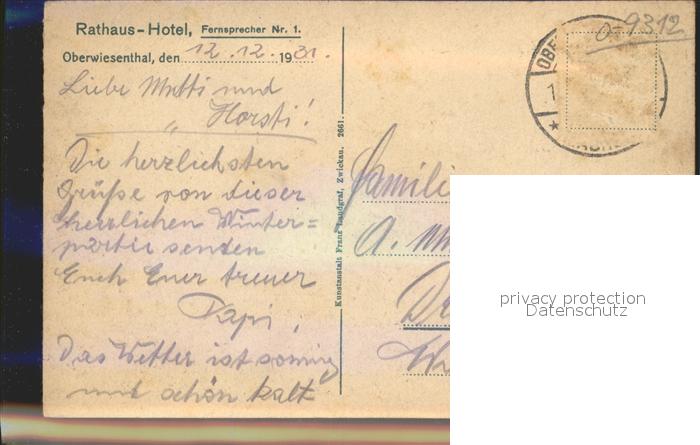 Rathaus-Hotel, Fernsprecher Nr. 1.
Oberwiesenthal, den 12.12.1931.
Liebe Mutti und
„ Horsti!
Die herzlichsten
Grüße von dieser
herrlichen Winter=
partie senden
Euch Euer treuer
Papi,
Das Wetter ist sonnig
und schön kalt
Kunstanstalt Franz Landgraf, Zwickau. 2661.
O-9312
OBE
1
Famili
A. M
privacy protection
Datenschutz